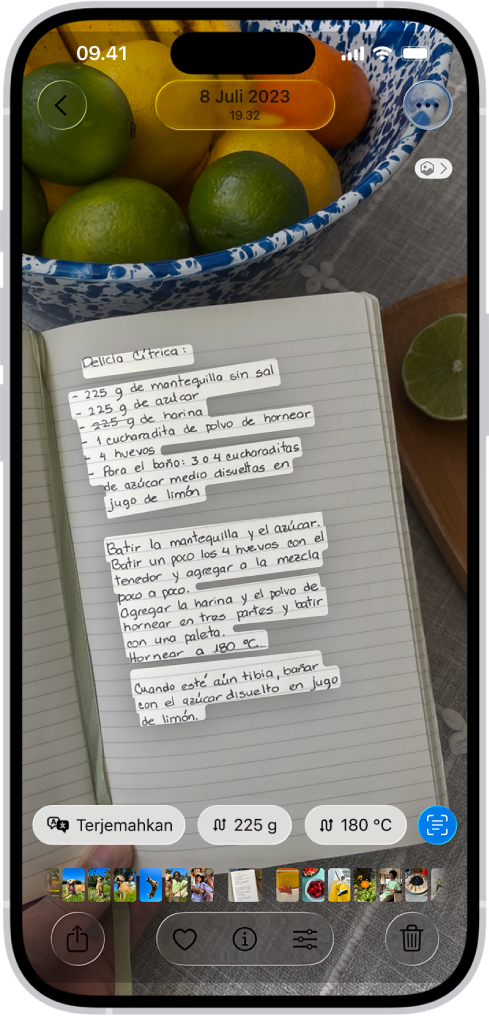 09.41
8 Juli 2023
19.32
Delicia Cítrica:
- 225 g de mantequilla sin sal
- 225 g de azúcar
- 225 g de harina
- 1 cucharadita de polvo de hornear
- 4 huevos
- Para el baño: 3 o 4 cucharaditas
de azúcar medio disueltas en
jugo de limón
Batir la mantequilla y el azúcar.
Batir un poco los 4 huevos con el
tenedor y agregar a la mezcla
poco a poco.
Agregar la harina y el polvo de
hornear en tres partes y batir
con una paleta.
Hornear a 180 °C.
Cuando esté aún tibia, bañar
con el azúcar disuelto en jugo
de limón.
Terjemahkan
225 g
180 °C